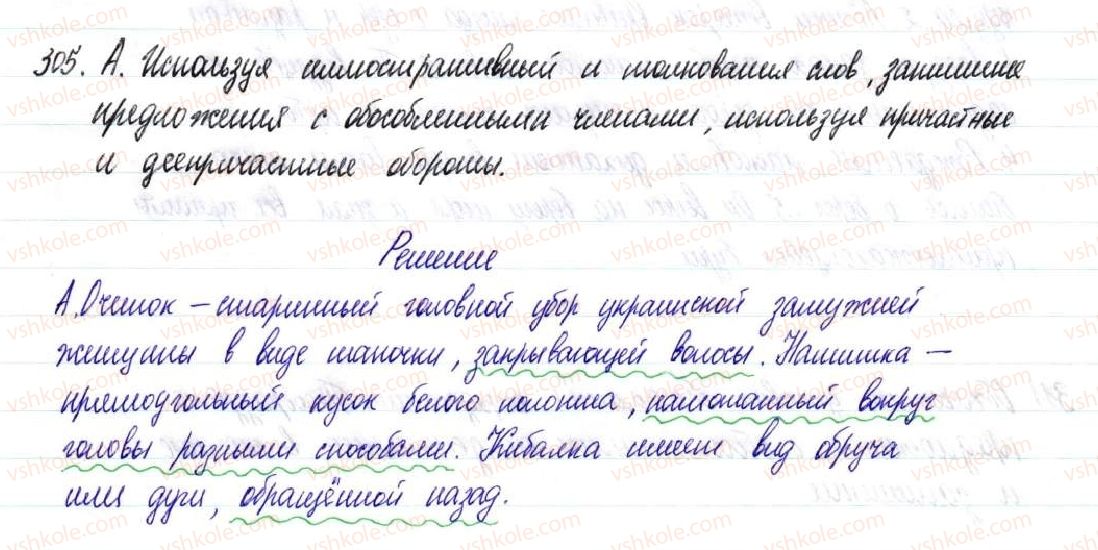 305. А. Используя иллюстративный и толкования слов, запишите
предложения с обособленными членами, используя причастные
и деепричастные обороты.
Решение
А. Очипок – старинный головной убор украинской замужней
женщины в виде шапочки, закрывающей волосы. Намитка –
прямоугольный кусок белого полотна, намотанный вокруг
головы разными способами. Кибалка имеет вид обруча
или дуги, обращённой назад.